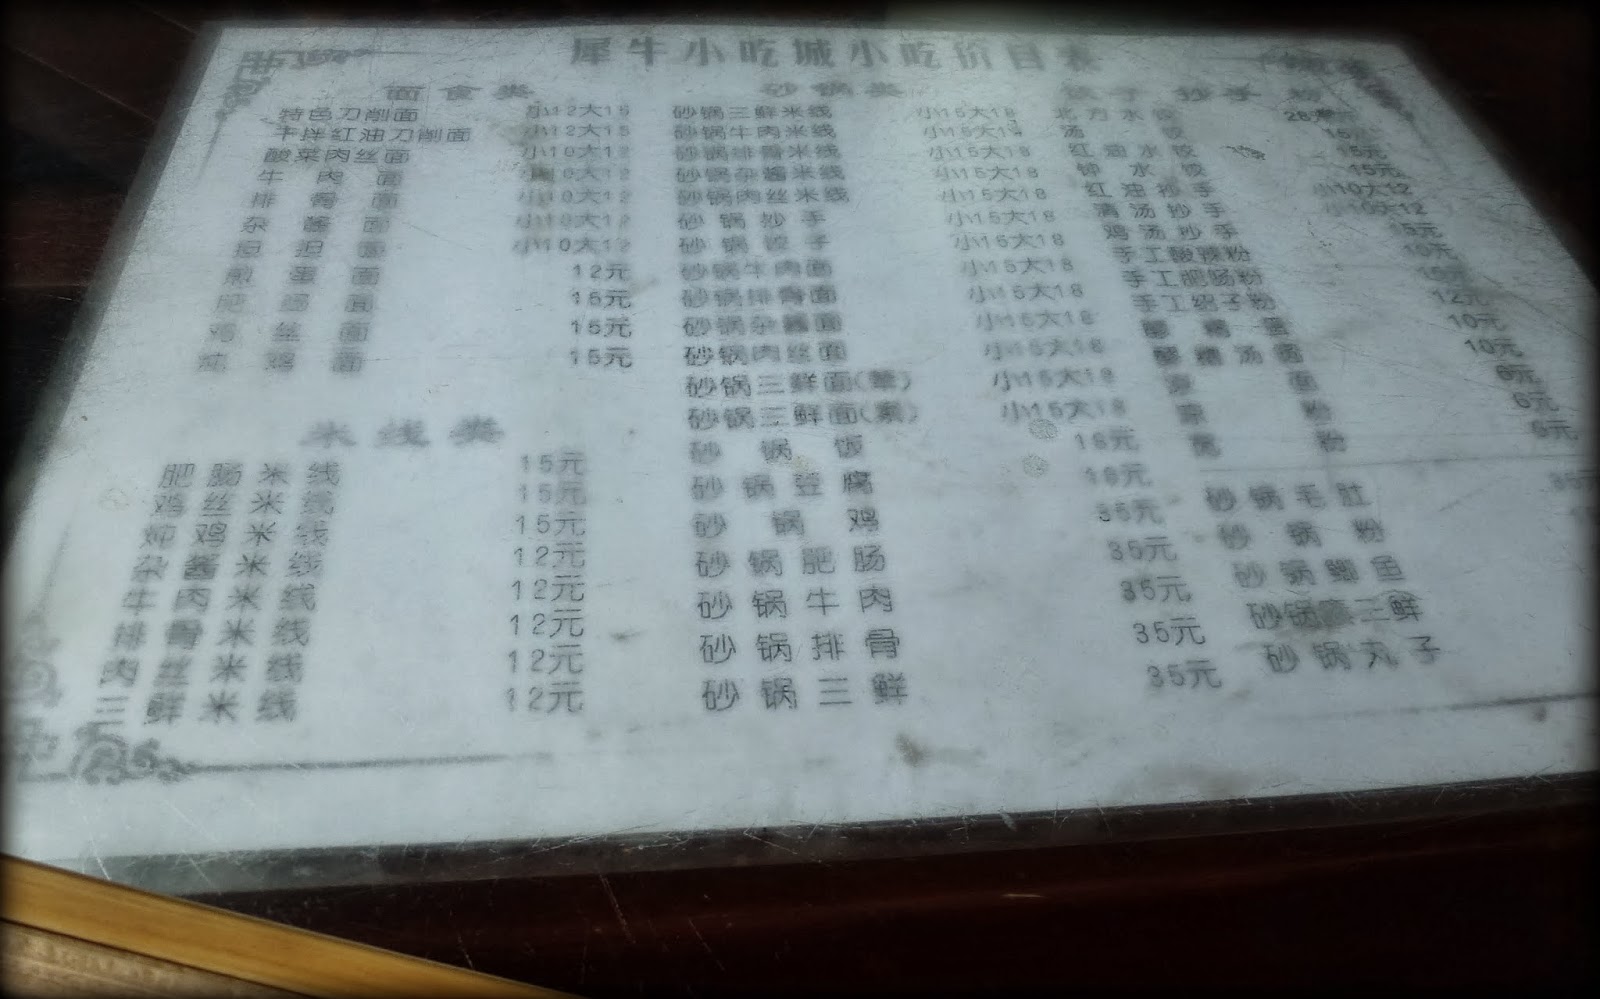 犀牛小吃城小吃价目表
面食类
特色刀削面 小12大15
牛拌红油刀削面 小12大15
酸菜肉丝面 小10大12
牛肉面 小10大12
排骨面 小10大12
杂酱面 小10大12
担担面 小10大12
煎蛋面 12元
肥肠面 15元
鸡丝面 15元
炖鸡面 15元
米线类
肥肠米线 15元
鸡丝米线 15元
炖鸡米线 15元
杂酱米线 12元
牛肉米线 12元
排骨米线 12元
肉丝米线 12元
三鲜米线 12元
砂锅类
砂锅三鲜米线 小15大18
砂锅牛肉米线 小15大18
砂锅排骨米线 小15大18
砂锅杂酱米线 小15大18
砂锅肉丝米线 小15大18
砂锅抄手 小15大18
砂锅饺子 小15大18
砂锅牛肉面 小15大18
砂锅排骨面 小15大18
砂锅杂酱面 小15大18
砂锅肉丝面 小15大18
砂锅三鲜面(荤) 小15大18
砂锅三鲜面(素) 小15大18
砂锅饭
砂锅豆腐
砂锅鸡 35元
砂锅肥肠 35元
砂锅牛肉 35元
砂锅排骨 35元
砂锅三鲜 35元
饺子 抄手 粉
北方水饺
汤饺 15元
红油水饺 15元
钟水饺 15元
红油抄手 小10大12
清汤抄手 小10大12
鸡汤抄手 15元
手工酸辣粉
手工肥肠粉
手工绍子粉 12元
醪糟蛋 10元
醪糟汤圆 10元
凉面 6元
凉粉 6元
砂锅毛肚
砂锅粉
砂锅鲫鱼
砂锅三鲜
砂锅丸子